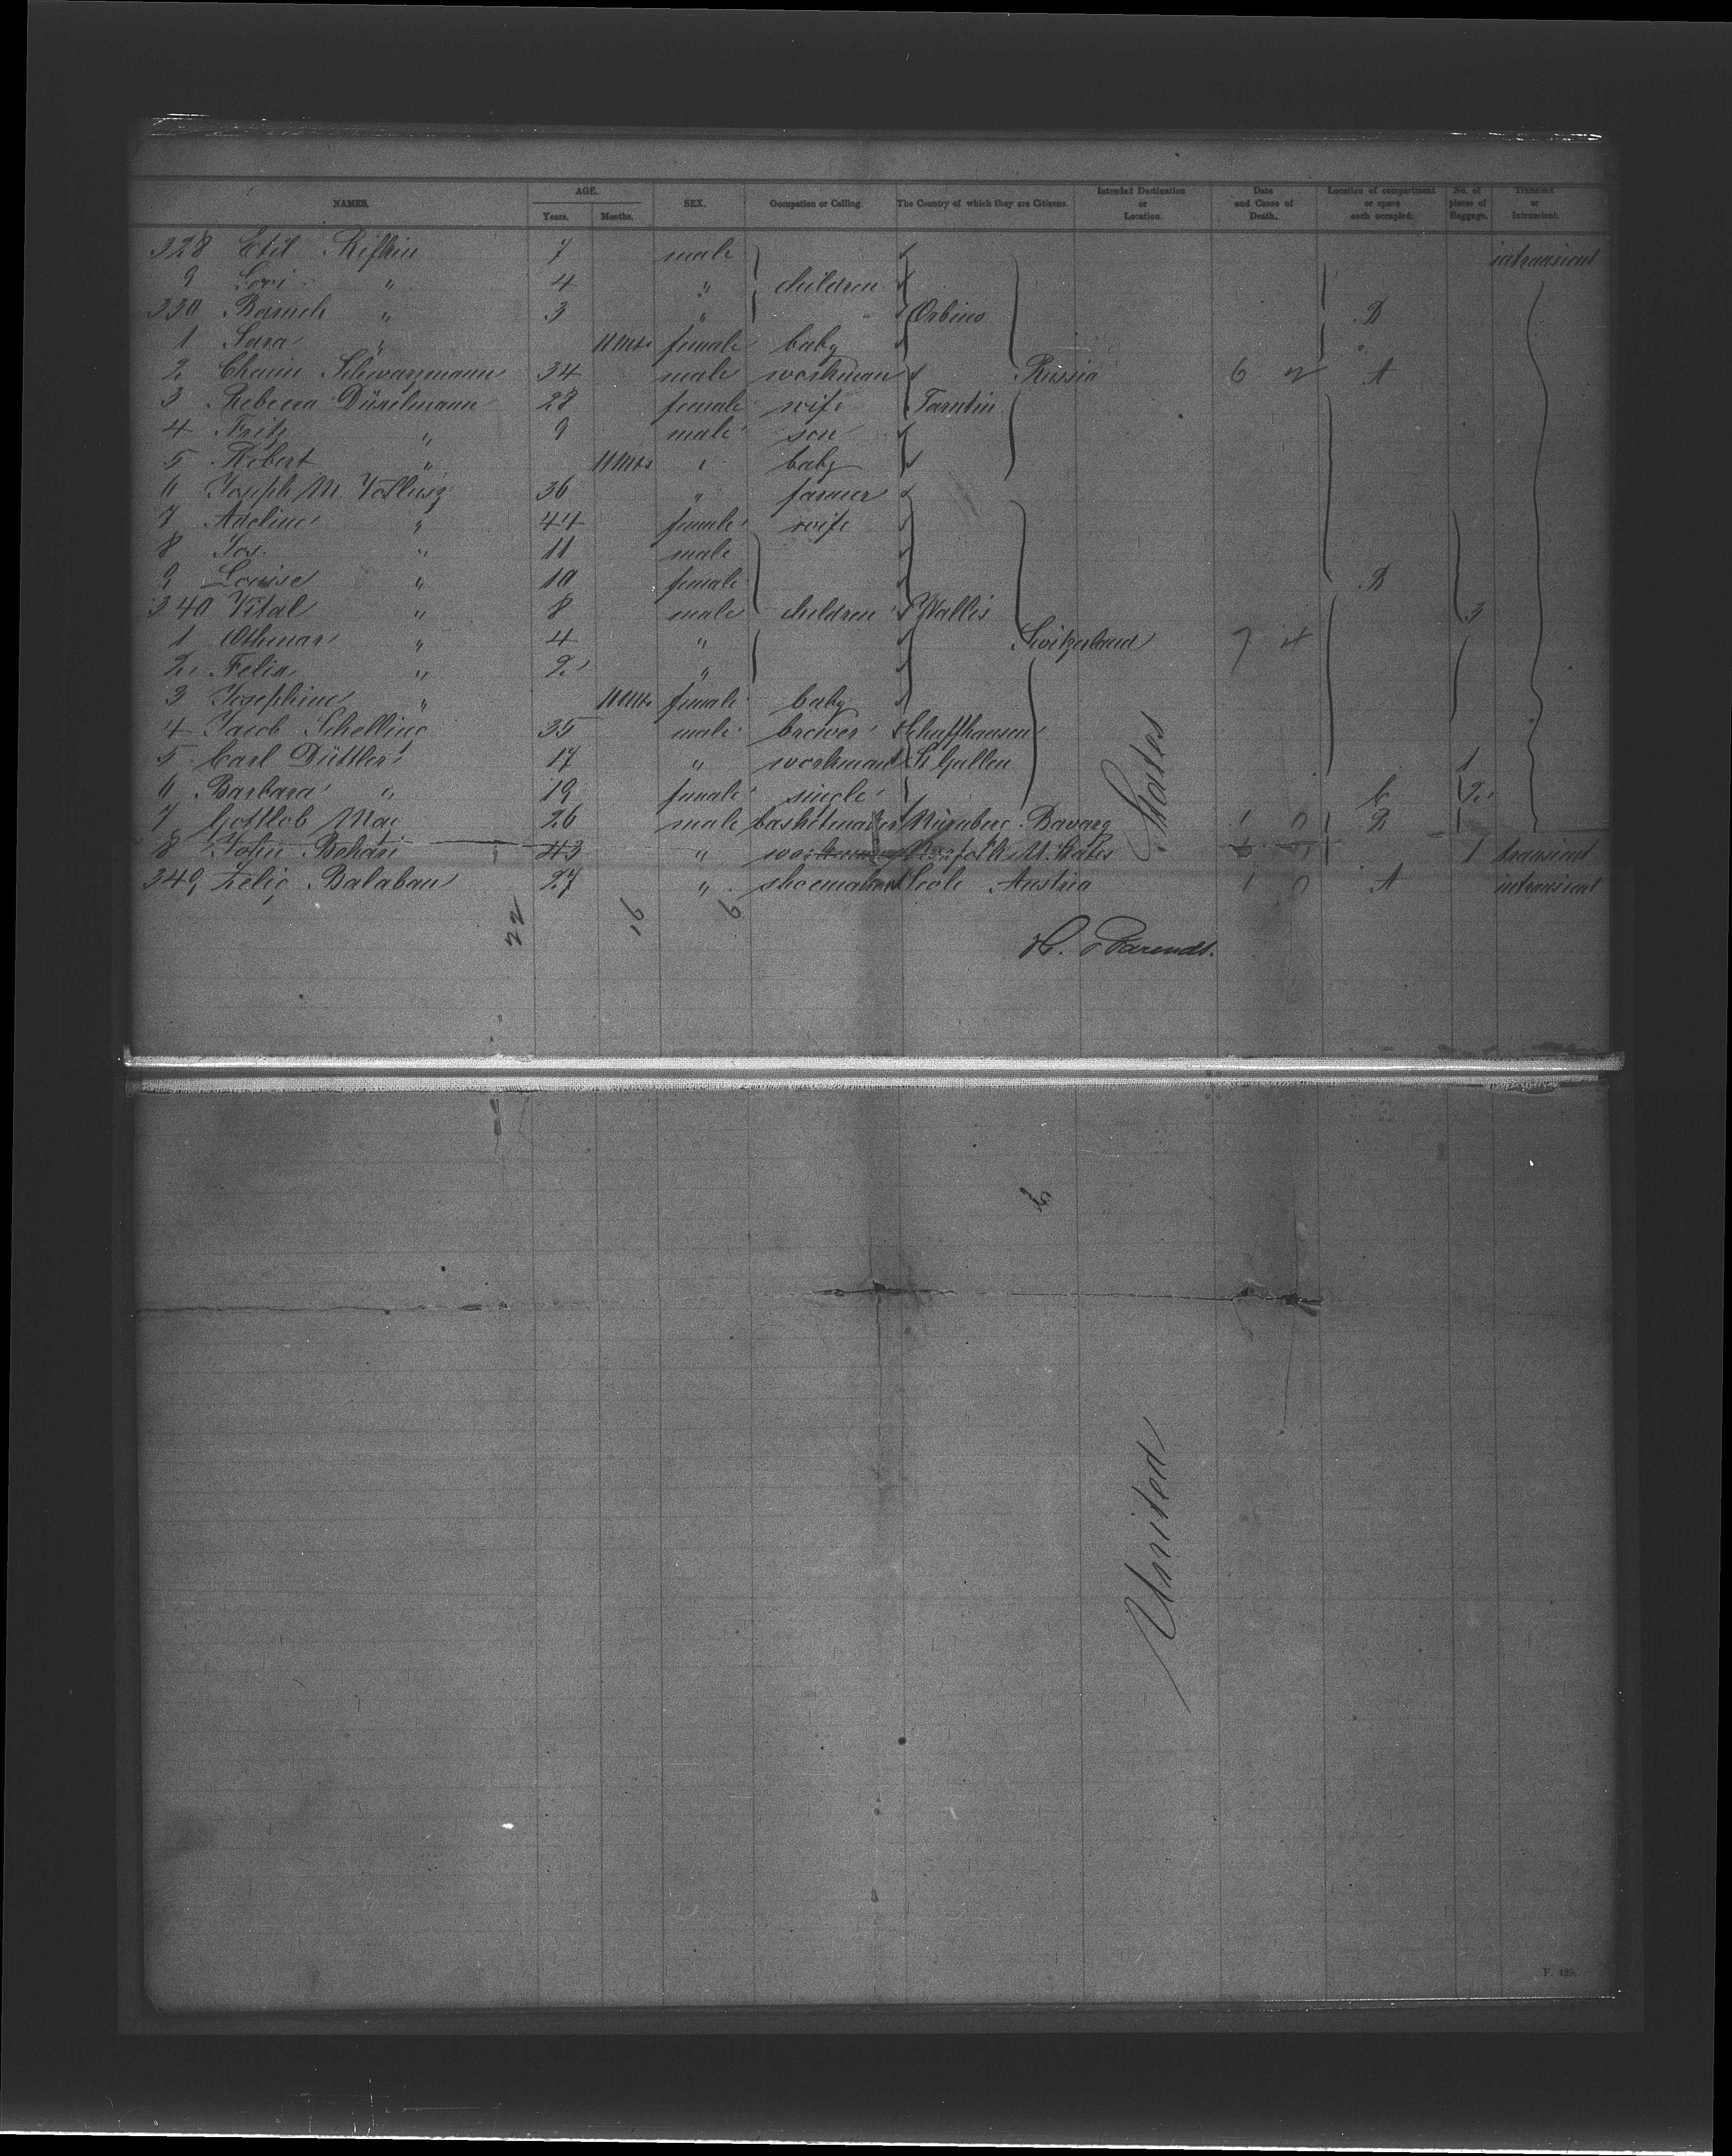 NAMES. AGE. Years. Months. SEX. Occupation or Calling. The Country of which they are Citizens. Intended Destination or Location. Date and Cause of Death. Location of compartment or space each occupied. No. of pieces of Baggage. Transient or Intransient.
328 Etil Rifkin 7 male intransient
9 " 4 " children
330 " 3 " Orbino B
1 Sara " 11 Mts female baby
2 Chaim Schwarzmann 34 male workman Russia 6 2 A
3 Rebecca Düselmann 28 female wife
4 Fritz " 9 male son
5 Robert " 11 Mts " baby
6 Joseph M. 36 " farmer
7 Adeline " 44 female wife
8 Jos. " 11 male
9 Louise " 10 female B
340 Vital " 8 male children Wallis 3
1 Othmar " 4 " Switzerland 7 4
2 Felix " 2 "
3 Josephine " 11 Mts female baby
4 Jacob Schelling 35 male brewer Schaffhausen
5 Carl Düttler 17 " workman St Gallen 1
6 Barbara " 19 female single C 2
7 Gottlob May 26 male basketmaker Nürnberg Bavary 1 0 B 1
8 John 43 " workman Norfolk U. States 1 transient
349 Zelig Balaban 27 " shoemaker Austria 1 0 A intransient
22 16 6
H. Barends.
United States
F. 425.